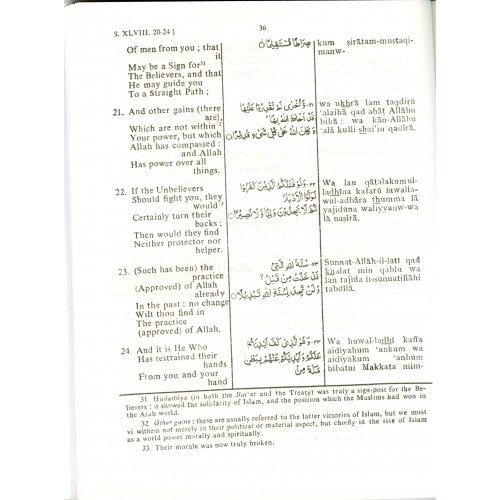 S. XLVIII. 20-24 ]
36
Of men from you ; that
it
May be a Sign for³¹
The Believers, and that
He may guide you
To a Straight Path ;
صِرَاطًا مُّسْتَقِيمًا ○
kum ṣirātam-mustaqi-
manw-
21. And other gains (there
are),
Which are not within ³²
Your power, but which
Allah has compassed :
and Allah
Has power over all
things.
٢١- وَّأُخْرَىٰ لَمْ تَقْدِرُوا عَلَيْهَا
قَدْ أَحَاطَ اللهُ بِهَا
وَكَانَ اللهُ عَلَىٰ كُلِّ شَيْءٍ قَدِيرًا ○
wa ukhrā lam taqdirū
'alaihā qad aḥāṭ Allāhu
bihā : wa kān-Allāhu
'alā kulli shai'in qadīrā.
22. If the Unbelievers
Should fight you, they
would
Certainly turn their
backs ;
Then would they find
Neither protector nor
helper.
٢٢- وَلَوْ قَاتَلَكُمُ الَّذِينَ كَفَرُوا
لَوَلَّوُا الْأَدْبَارَ
ثُمَّ لَا يَجِدُونَ وَلِيًّا وَّلَا نَصِيرًا ○
Wa lau qātalakumul-
ladhīna kafarū lawalla-
wul-adbāra thumma lā
yajidūna waliyyanw-wa
lā naṣīrā.
23. (Such has been) the
practice
(Approved) of Allah
already
In the past : no change
Wilt thou find in
The practice
(approved) of Allah.
٢٣- سُنَّةَ اللهِ الَّتِي
قَدْ خَلَتْ مِنْ قَبْلُ
وَلَنْ تَجِدَ لِسُنَّةِ اللهِ تَبْدِيلًا ○
Sunnat-Allāh-il-latī qad
khalat min qablu wa
lan tajida li-sunnatillāhi
tabdīlā.
24. And it is He Who
Has restrained their
hands
From you and your
hand
٢٤- وَهُوَ الَّذِي كَفَّ أَيْدِيَهُمْ
عَنْكُمْ وَأَيْدِيَكُمْ عَنْهُمْ بِبَطْنِ
مَكَّةَ مِنْ
Wa huwal-ladhī kaffa
aidiyahum 'ankum wa
aidiyakum 'anhum
bibatni Makkata mim-
31. Hudaibīya (in both the Bai'at and the Treaty) was truly a sign-post for the Be-
lievers : it showed the solidarity of Islam, and the position which the Muslims had won in
the Arab world.
32 Other gains ; these are usually referred to the latter victories of Islam, but we must
vi withein not merely in their political or material aspect, but chiefly in the rise of Islam
as a world power morally and spiritually.
33. Their morale was now truly broken.